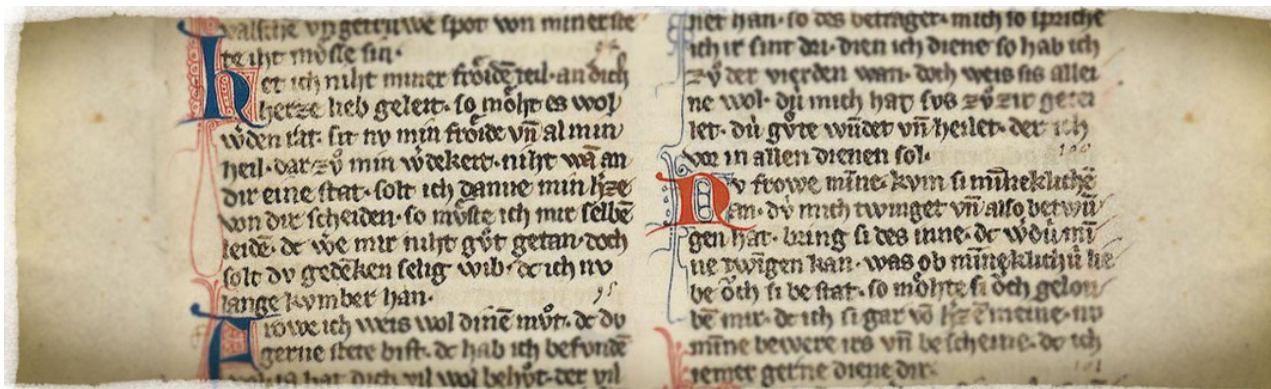 valsche vn̄ getrúwe spot von miner ste
te iht mv̊sse sin·
Het ich niht miner frôidē teil· an dich
herze lieb geleit· so môht es wol
w̓den rat· sit nv min frôide vn̄ al min
heil· dar zv̊ min w̓dekeit· niht wā an
dir eine stat· solt ich danne min h̓ze
von dir scheiden· so mv̊ste ich mir selbē
leidē· dc w̓e mir niht gv̊t getan· doch
solt dv gedēken selig wib· dc ich nv
lange kvmber han·
Frowe ich weis wol dinē mv̊t· dc dv
gerne stete bist· dc hab ich befundē
wol· ia hat dich vil wol behv̊t· der vil
net han· so des betraget· mich so spriche
ich ir sint dri· dien ich diene so hab ich
zv̊ der vierden wan· doch weis sis allei
ne wol· dú mich hat svs zv̊ zir getei
let· dú gv̊te wūdet vn̄ heilet· der ich
vor in allen dienen sol·
Nv frowe mīne· kvm si mīneklichē
an· dú mich twinget vn̄ also betwū
gen hat· bring si des inne· dc w̓dú mī
ne twīgen kan· was ob mīneklichú lie
be ôch si bestat· so môhte si ôch gelou
bē mir· dc ich si gar vō h̓zē meine· nv
mīne bewere irs vn̄ bescheine· dc ich
iemer gerne diene dir·